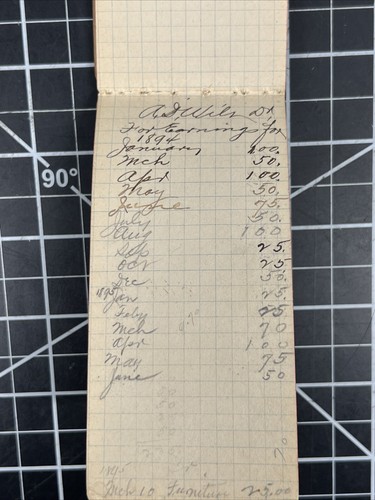 A.J. Wils Dr
For Earning for
1894
January 100.
Mch 50.
Apr 100.
May 50.
June 75.
July 50.
Aug 100
Sep 25.
Oct 25
Dec 50.
1895 Jan 25.
Feby 25
Mch 70
Apr 100
May 75
June 50
1895
Mch 10 Furniture 25.00
90°